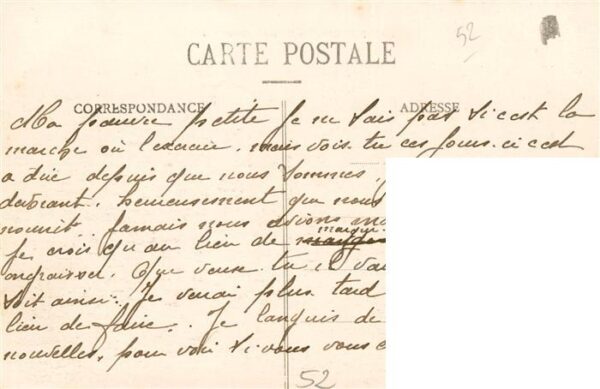 52
CARTE POSTALE
CORRESPONDANCE
ADRESSE
Ma pauvre petite Je ne sais pas si c'est la
marche ou l'exercice, mais vois tu ces jours-ci c'est
a dire depuis que nous sommes
heureusement que nous
nourit. Jamais nous avions
Je crois qu'au lieu de maigrir
engraisser. Que veux tu il
soit ainsi. Je verai plus tard
lieu de faire. Je languis de
nouvelles, pour voir si vous vous
52